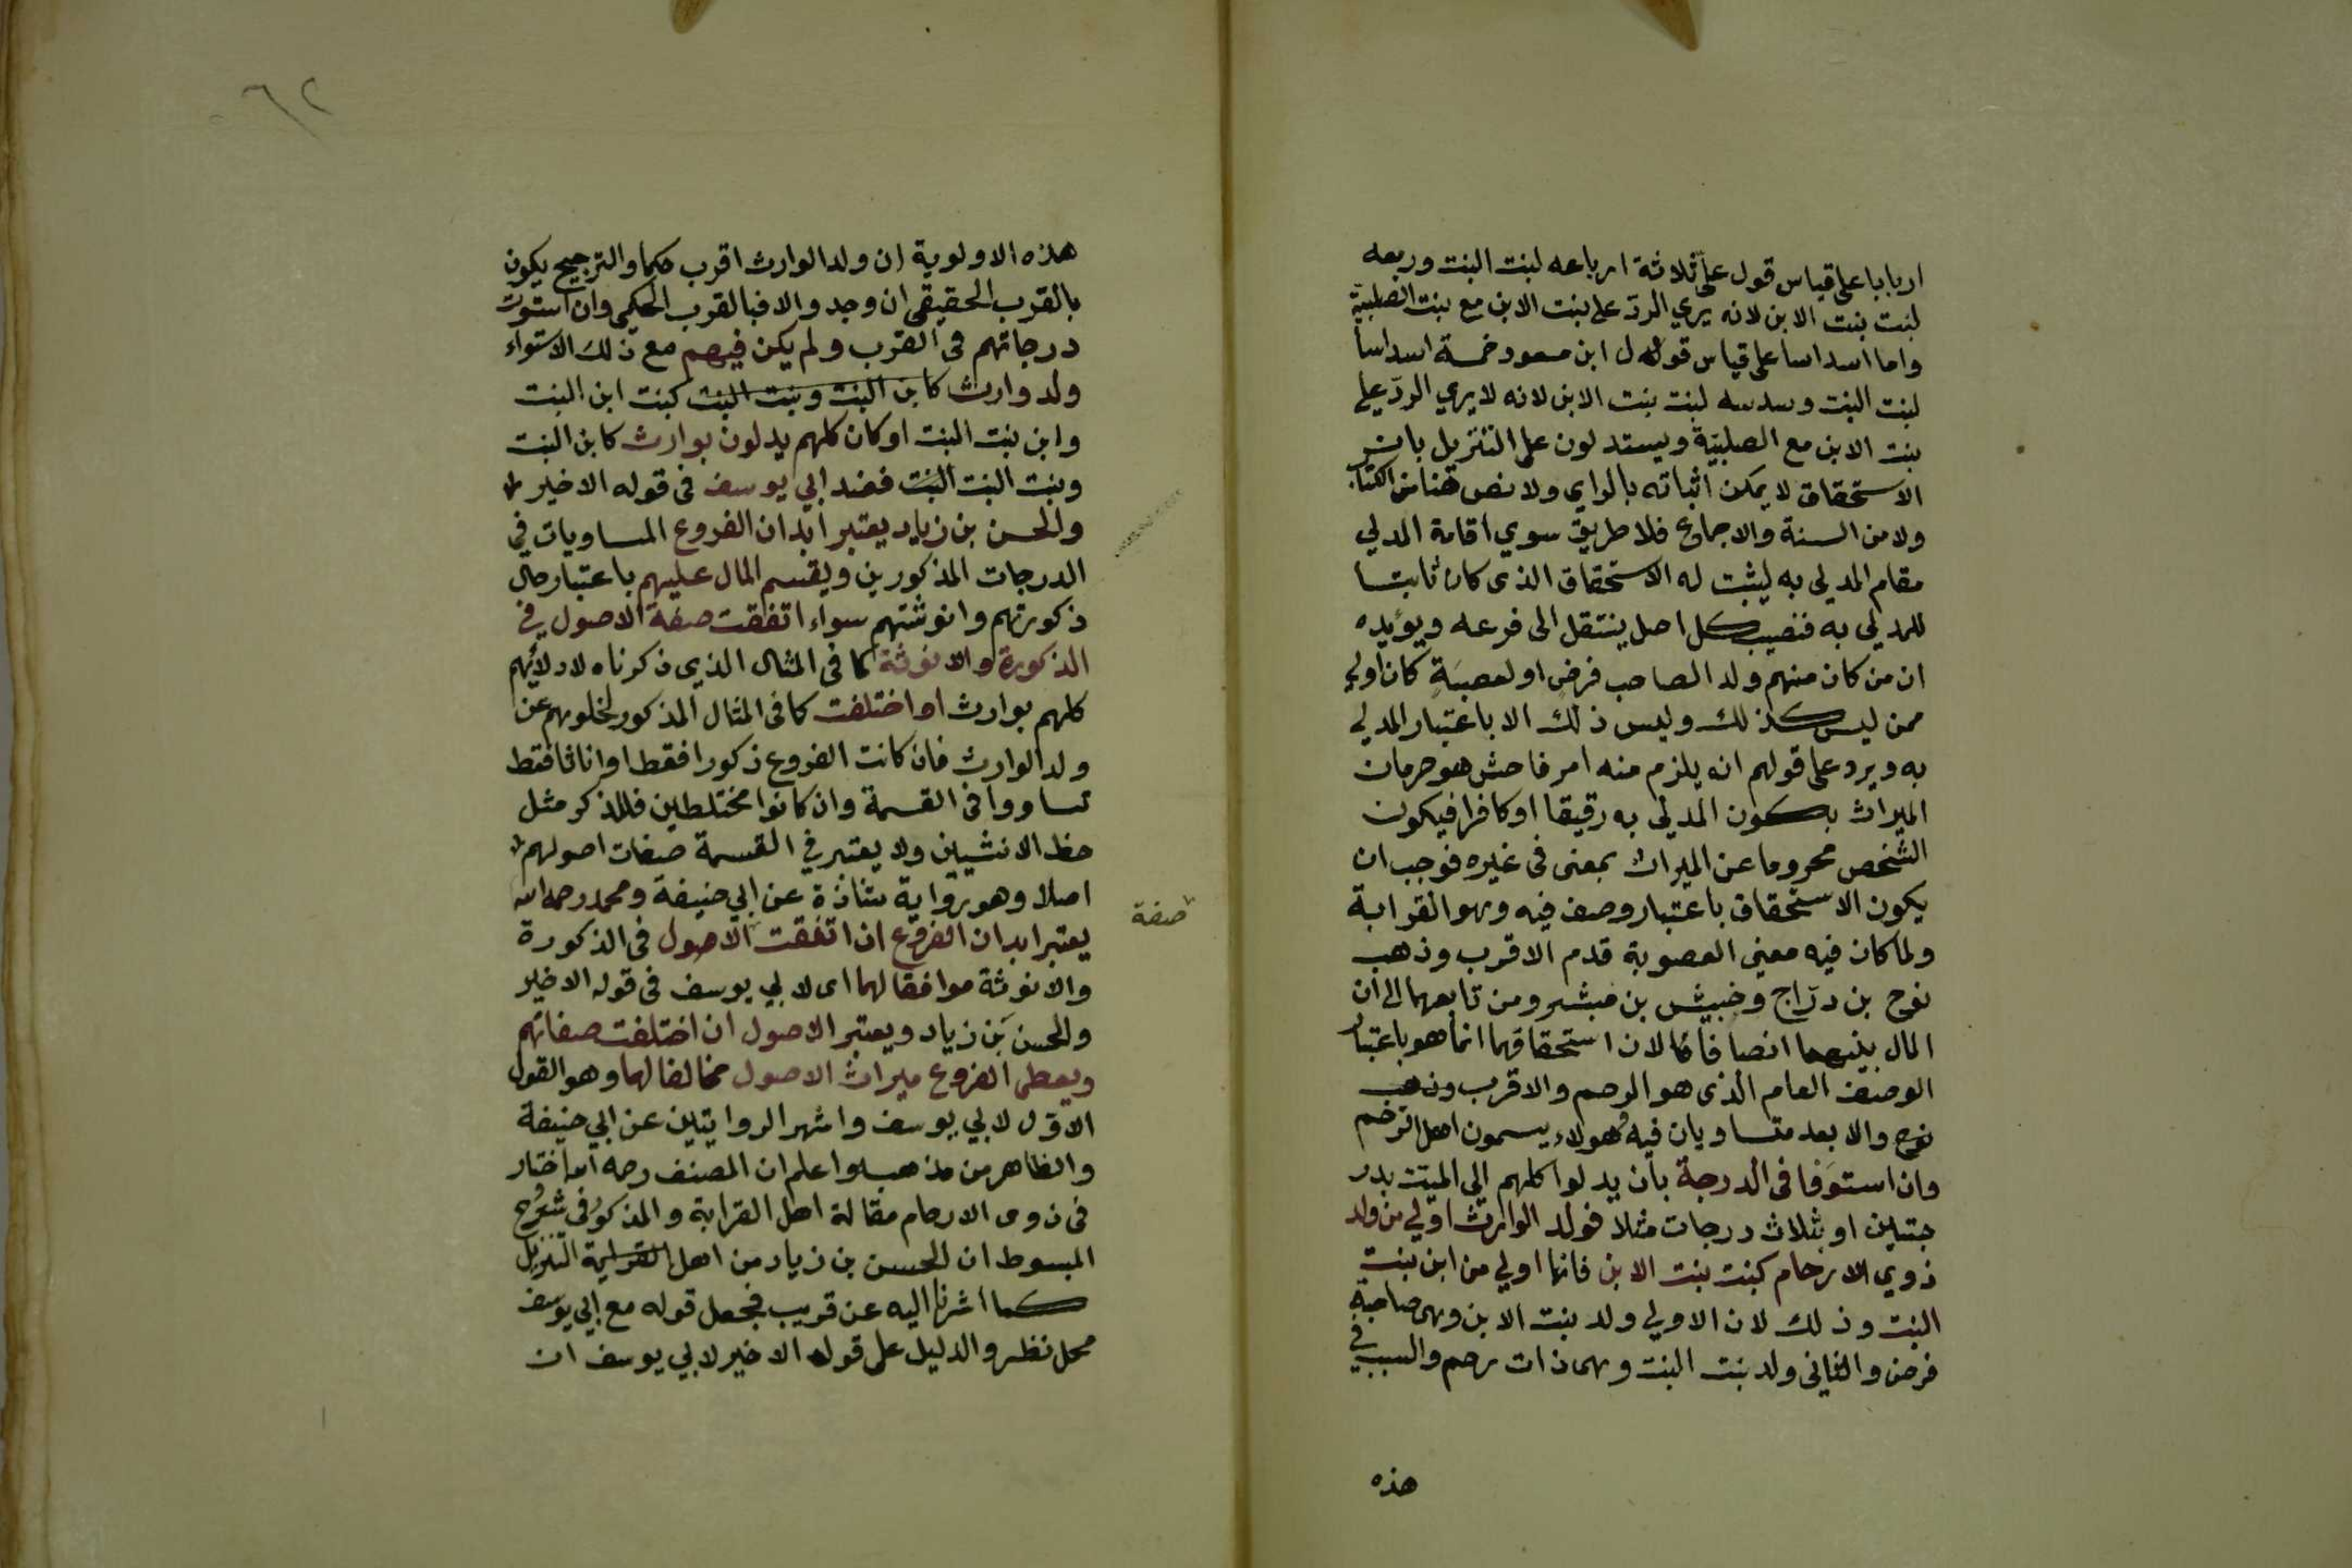 اربابا على قياس قول على ثلاثة ارباعه لبنت البنت وربعه
لبنت بنت الابن لانه يري الردّ على بنت الابن مع بنت الصلبيّة
واما اسداسا على قياس قول ابن مسعود خمسة اسداسا
لبنت البنت وسدسه لبنت بنت الابن لانه لا يري الردّ على
بنت الابن مع الصلبيّة ويستدلون على التنزيل بان
الاستحقاق لا يمكن اثباته بالراي ولا نص هنا من الكتاب
ولا من السنة والاجماع فلا طريق سوي اقامة المدلي
مقام المدلي به ليثبت له الاستحقاق الذى كان ثابتا
للمدلي به فنصيب كل اصل ينتقل الى فرعه ويؤيده
ان من كان منهم ولد الصاحب فرض او لعصبَةٍ كان اولي
ممن ليس كذلك وليس ذلك الا باعتبار المدلي
به ويرد على قولهم انه يلزم منه امر فاحش هو حرمان
الميراث بكون المدلي به رقيقا او كافرا فيكون
الشخص محروما عن الميراث بمعنى فى غيره فوجب ان
يكون الاستحقاق باعتبار وصف فيه وهو القرابة
ولما كان فيه معني العصوبة قدم الاقرب وذهب
نوح بن درّاج وحبيش بن مبشر ومن تابعهما الى ان
المال بينهما انصافا لان استحقاقهما انما هو باعتبار
الوصف العام الذى هو الرحم والاقرب وذهب
نوح والابعد متساويان فيه وهولاء يسمون اهل الرحم
وان استوَفا فى الدرجة بان يدلوا كلهم الي الميّت بدر
جتين او بثلاث درجات مثلا فولد الوارث اولي من ولد
ذوي الارحام كبنت بنت الابن فانها اولي من ابن بنت
البنت وذلك لان الاولي ولد بنت الابن وهى صاحبة
فرض والثانى ولد بنت البنت وهى ذات رحم والسبب في
هذه
٦٢
هذه الاولوية ان ولد الوارث اقرب حكما والترجيح يكون
بالقرب الحقيقى ان وجد والا فبالقرب الحكمى وان استوت
درجاتهم فى القرب ولم يكن فيهم مع ذلك الاستواء
ولد وارث كابن البنت وبنت البنت كبنت ابن البنت
وابن بنت البنت او كان كلهم يدلون بوارث كابن البنت
وبنت البنت البنت فعند ابي يوسف فى قوله الاخير
والحسن بن زياد يعتبر ابدان الفروع المساويات في
الدرجات المذكورين ويقسم المال عليهم باعتبار حال
ذكورتهم وانوثتهم سواء اتفقت صفة الاصول في
الذكورة والانوثة كما فى المثال الذي ذكرناه لادلائهم
كلهم بوارث او اختلفت كما فى المثال المذكور لخلوهم عن
ولد الوارث فان كانت الفروع ذكورا فقط او اناثا فقط
تساووا فى القسمة وان كانوا مختلطين فللذكر مثل
حظ الانثيين ولا يعتبر في القسمة صفات اصولهم
اصلا وهو رواية شاذة عن ابي حنيفة ومحمد رحمه الله
يعتبر ابدان الفروع ان اتفقت الاصول فى الذكورة
صفة
والانوثة موافقا لهما اى لابي يوسف فى قوله الاخير
والحسن بَن زياد ويعتبر الاصول ان اختلفت صفاتهم
ويعطى الفروع ميراث الاصول مخالفا لهما وهو القول
الاول لابي يوسف واشهر الروايتين عن ابي حنيفة
والظاهر من مذهبه واعلم ان المصنف رحمه الله اختار
فى ذوى الارحام مقالة اهل القرابة والمذكور فى شروح
المبسوط ان الحسن بن زياد من اهل القرابة التنزيل
كما اشرنا اليه عن قريب فجعل قوله مع ابي يوسف
محل نظر والدليل على قوله الاخير لابي يوسف ان